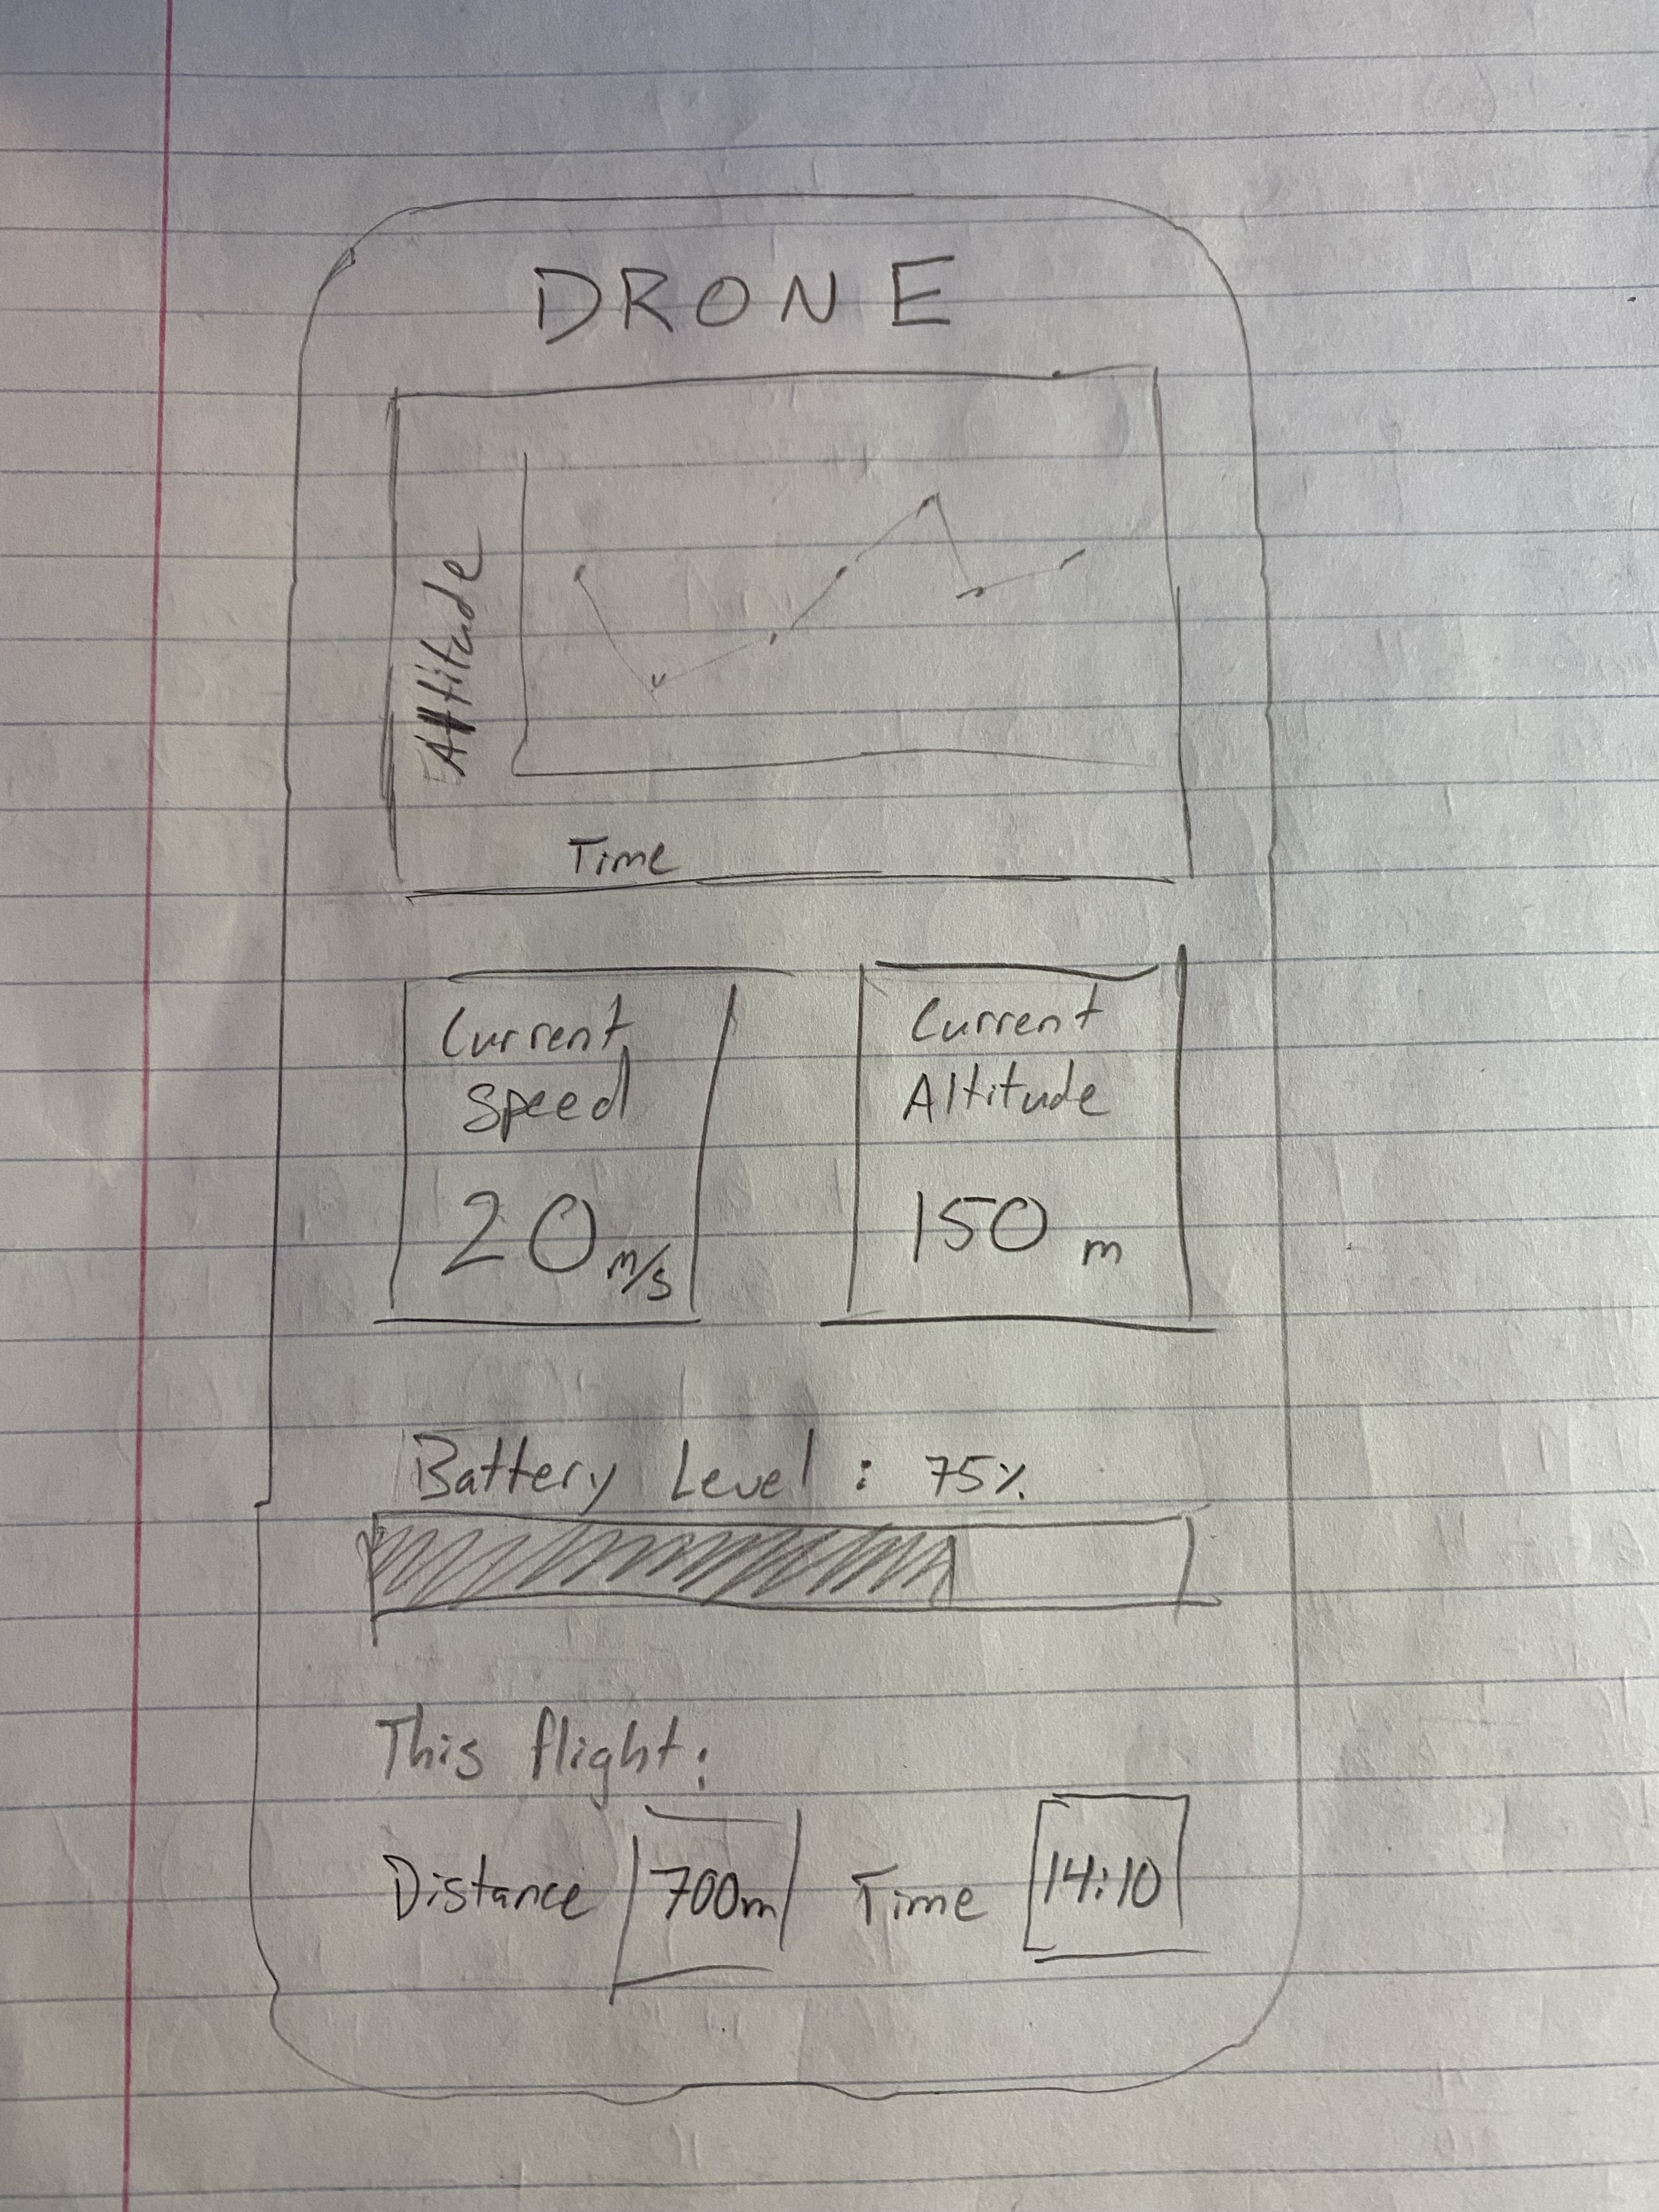 DRONE
Altitude
Time
Current
Speed
20 m/s
Current
Altitude
150 m
Battery Level : 75%
This flight:
Distance 700m Time 14:10